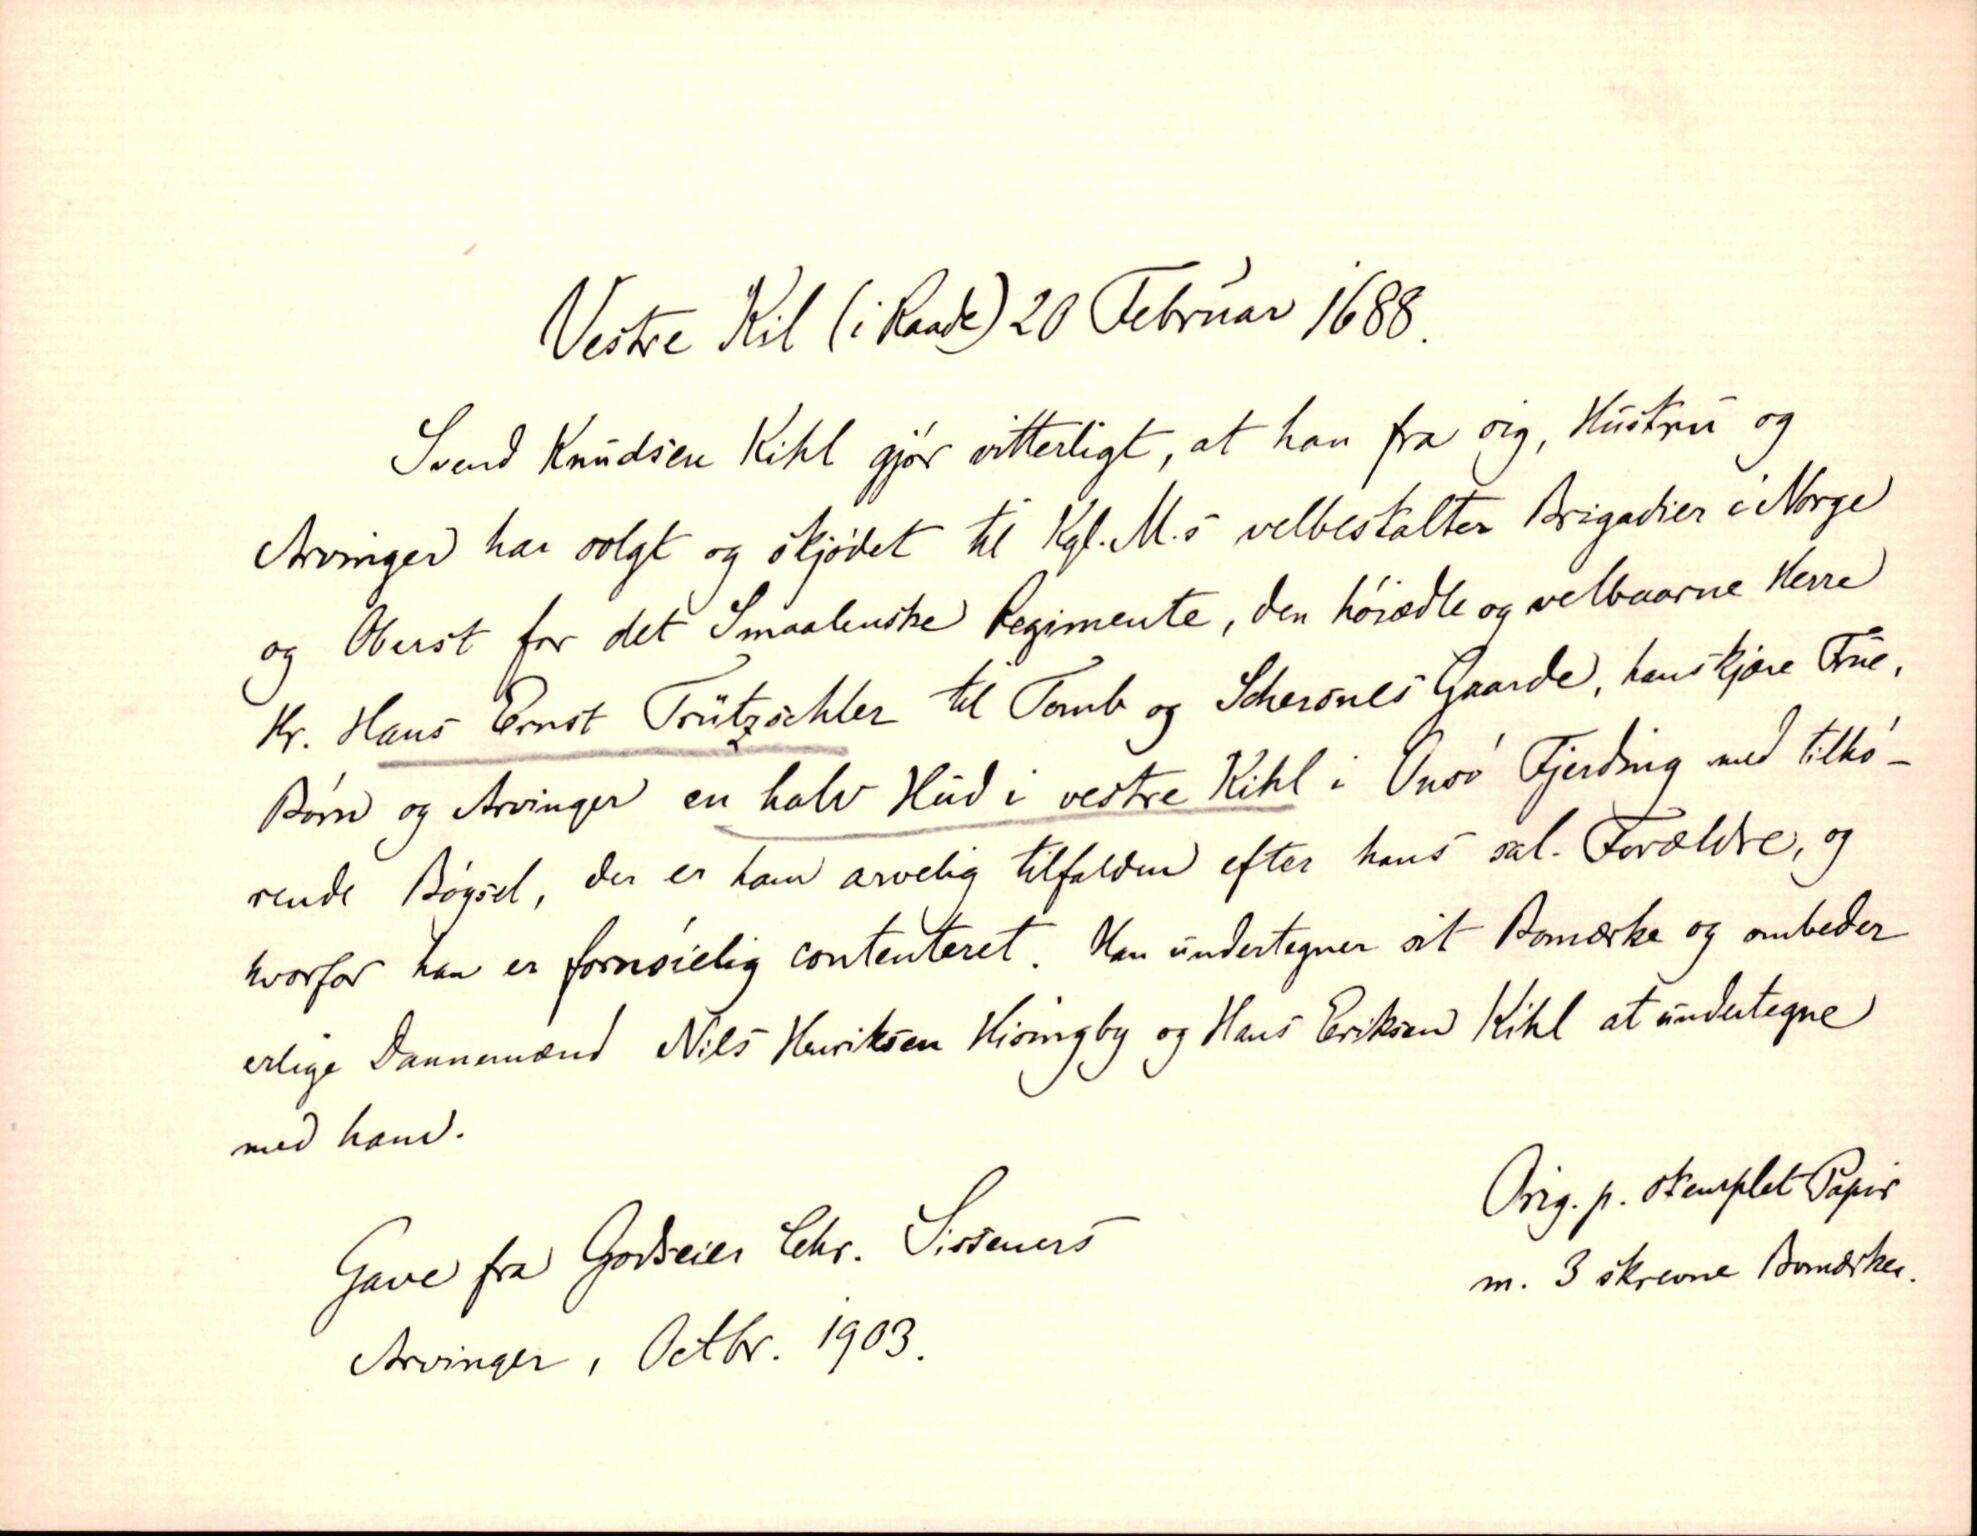 Vestre Kil (i Raade) 20 Februar 1688.
Svend Knudsen Kihl gjör vitterligt, at han fra sig, Hustru og
Arvinger har solgt og skjödet til Kgl. M.s velbestalter Brigadier i Norge
og Oberst for det Smaalenske Regimente, den höiædle og velbaarne Herre
Hr. Hans Ernst Trützschler til Tomb og Schersnes Gaarde, hans kjære Frue,
Börn og Arvinger en halv Hud i vestre Kihl i Onsö Fjerding med tilhö-
rende Bögsel, der er ham arvelig tilfalden efter hans sal. Forældre, og
hvorfor han er fornöielig contenteret. Han undertegner sit Bomærke og ombeder
erlige Dannemænd Nils Henriksen Hisingby og Hans Eriksen Kihl at undertegne
med ham.
Orig. p. stemplet Papir
m. 3 skrevne Bomærker.
Gave fra Godseier Chr. Sisseners
Arvinger, Octbr. 1903.